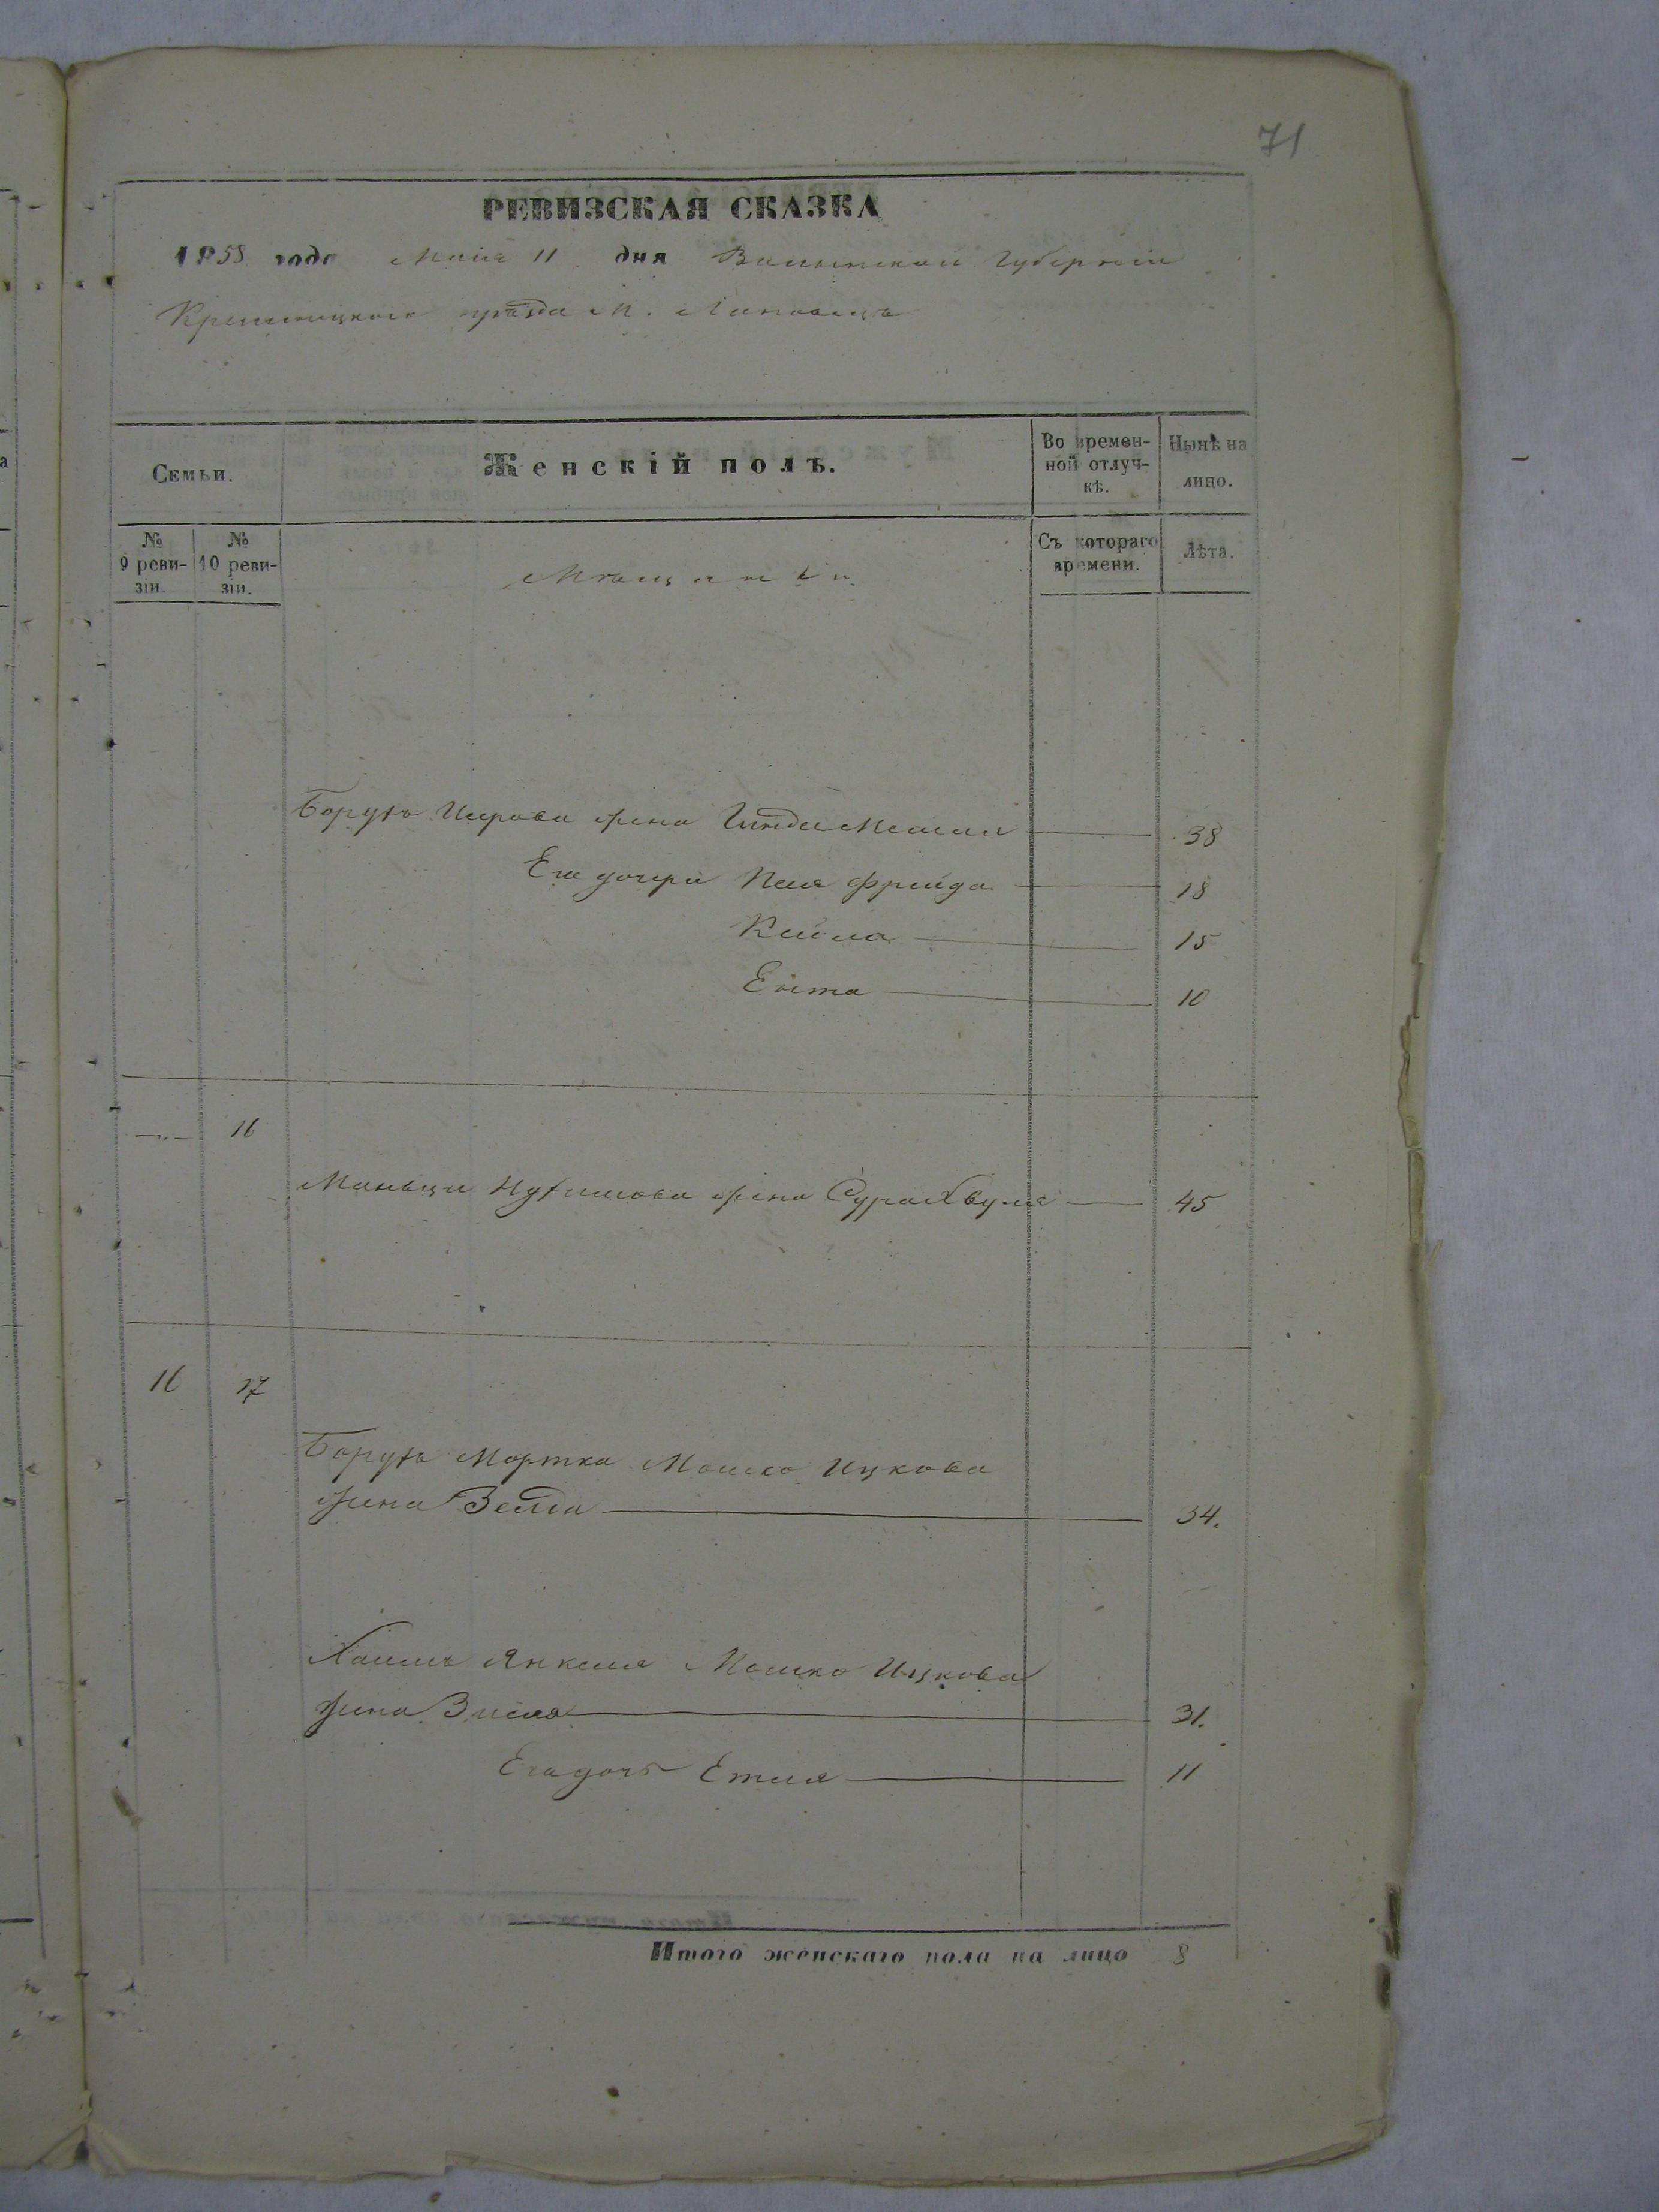 71
РЕВИЗСКАЯ СКАЗКА
1858 года Маія 11 дня Волынской Губерніи
Кременецкаго уѣзда М. Лановецъ
Семьи.
Женскій полъ.
Во времен-
ной отлуч-
кѣ.
Нынѣ на
лицо.
№
9 реви-
зіи.
№
10 реви-
зіи.
Мѣщанки
Съ котораго
времени.
Лѣта.
Борухъ Шерова жена Гинда 38
Его дочери Песя Фрейда 18
Кейла 15
Ента 10
16
жена Сура Хвуля 45
16 17
Борухъ Мортка Мошко Ицкова
жена Зелда 34.
Хаимъ Янкеля Мошко Ицкова
жена Зисля 31.
Его дочь Етля 11
Итого женскаго пола на лицо 8